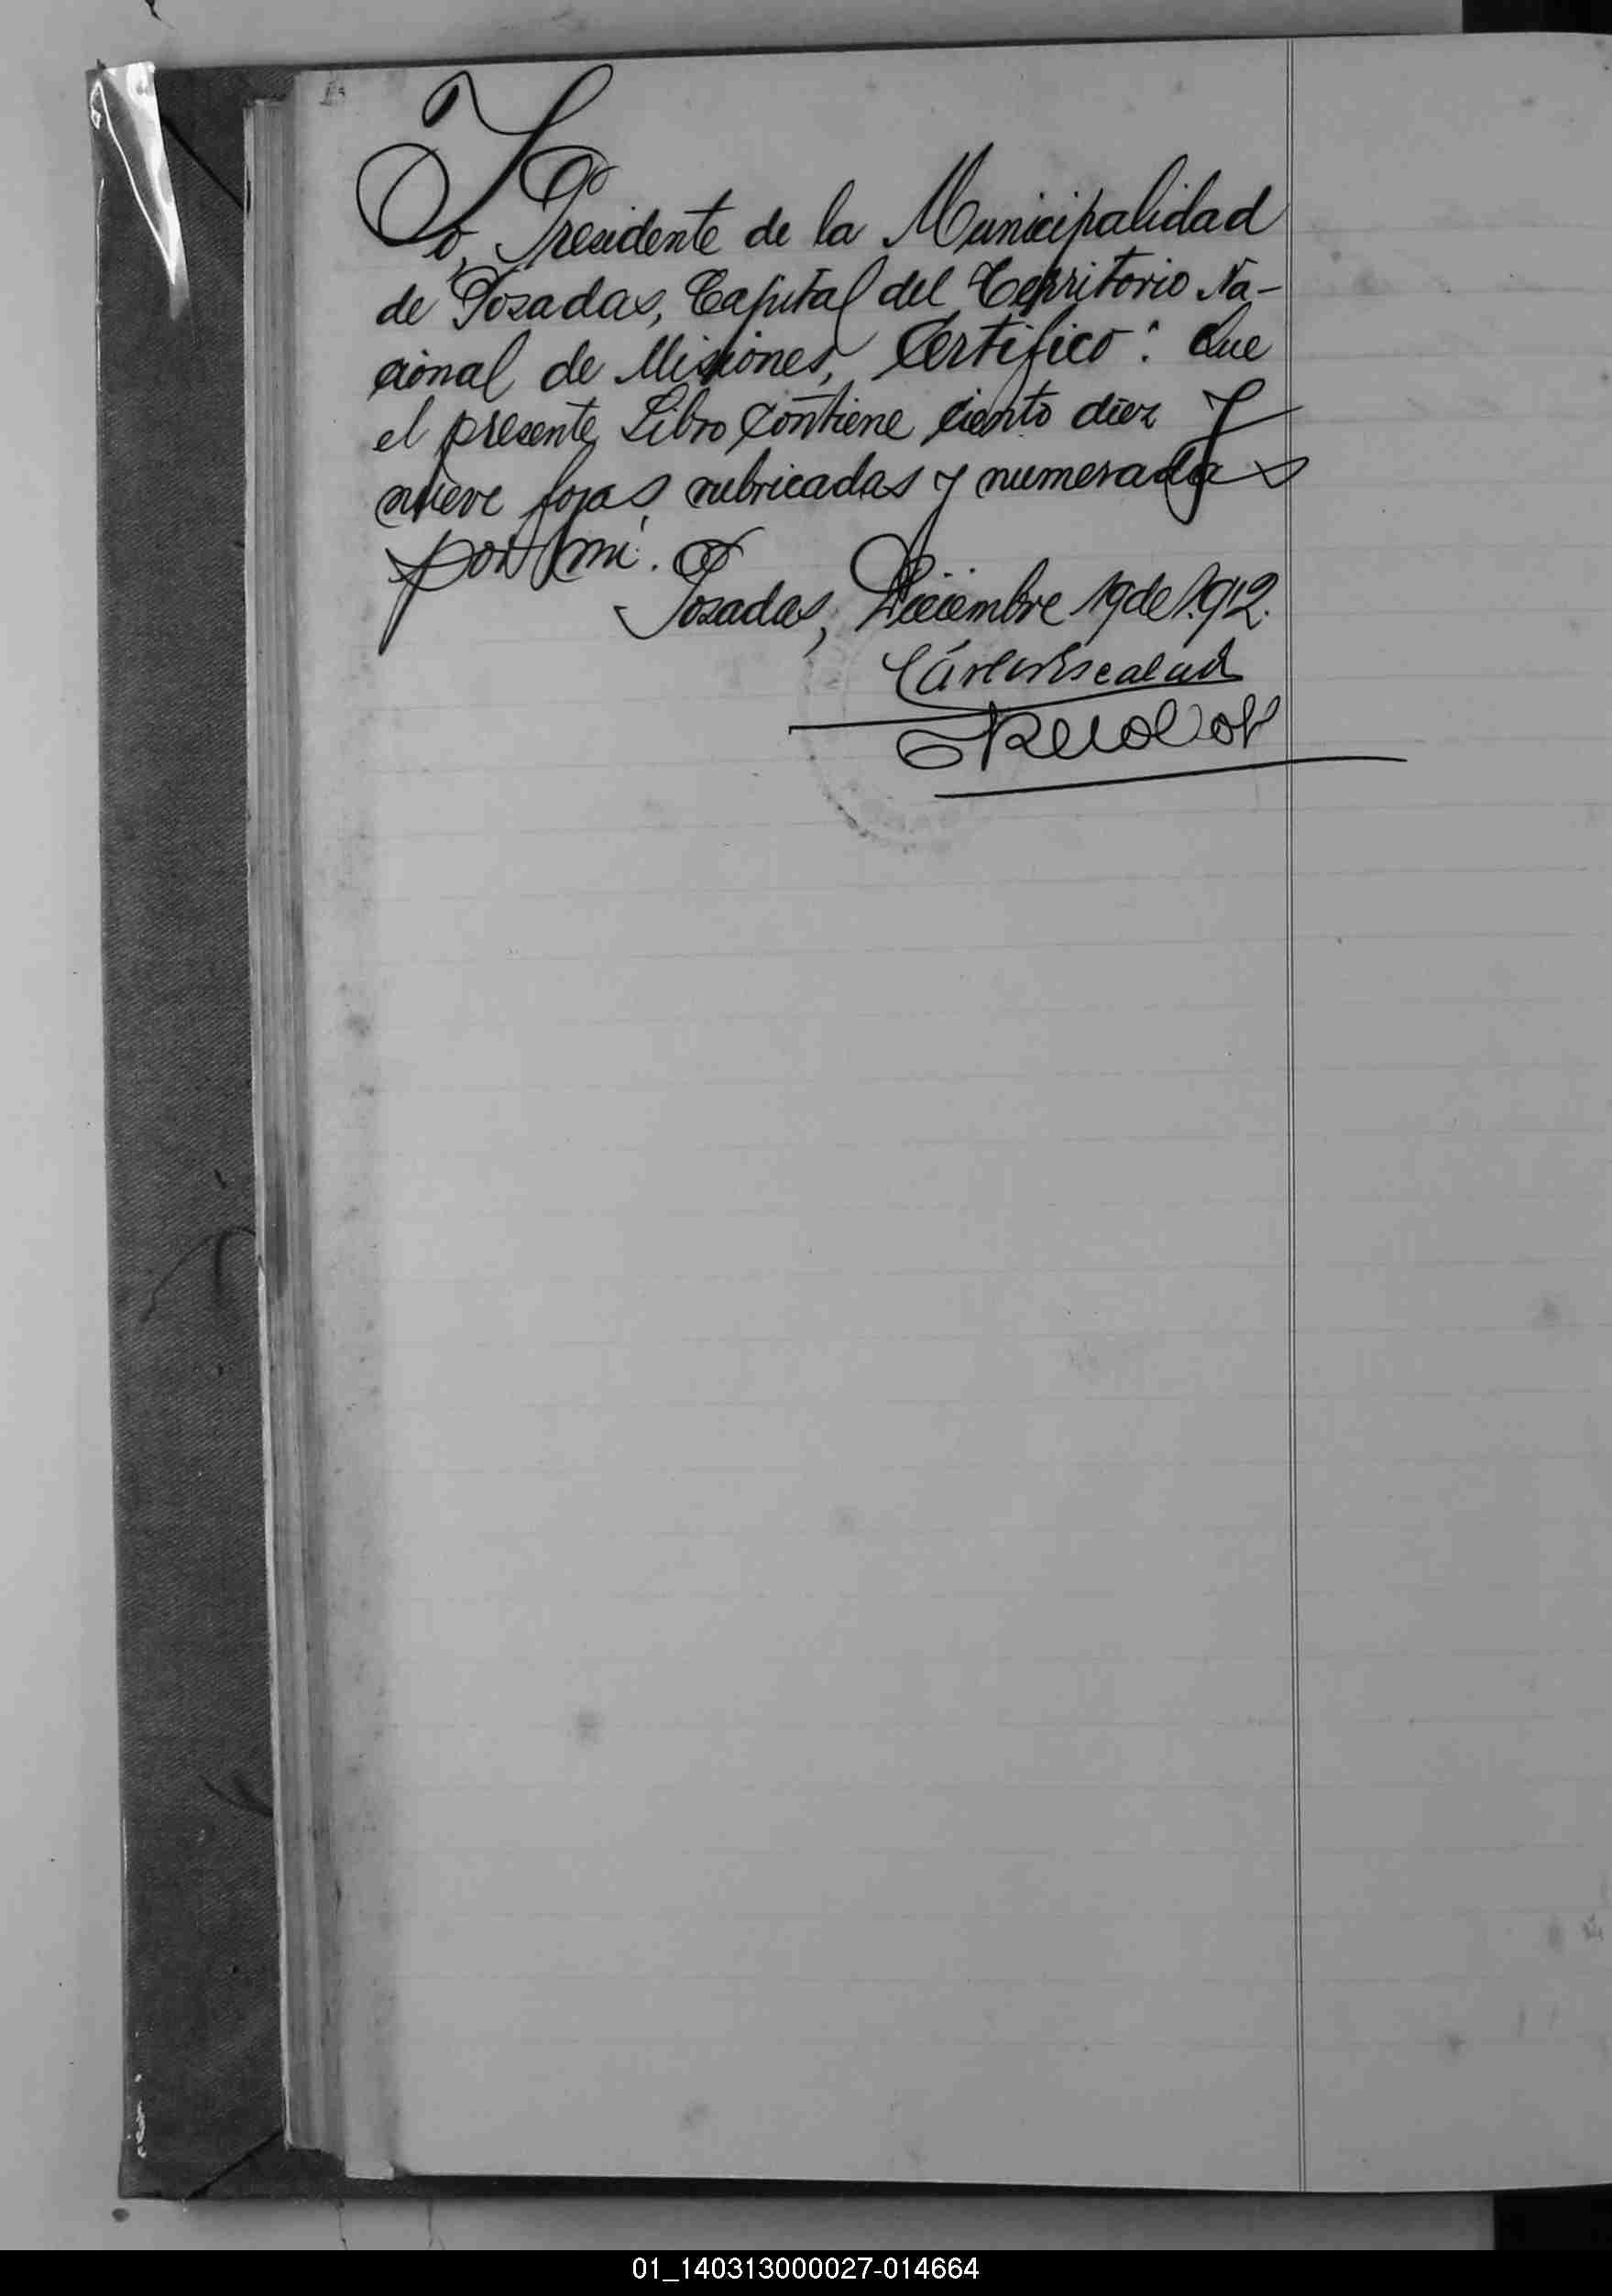 Yo, Presidente de la Municipalidad
de Posadas, Capital del Territorio Na-
cional de Misiones, Certifico: Que
el presente Libro contiene ciento diez y
nueve fojas rubricadas y numeradas
por mi.
Posadas, Diciembre 19 de 1.912.
01_140313000027-014664